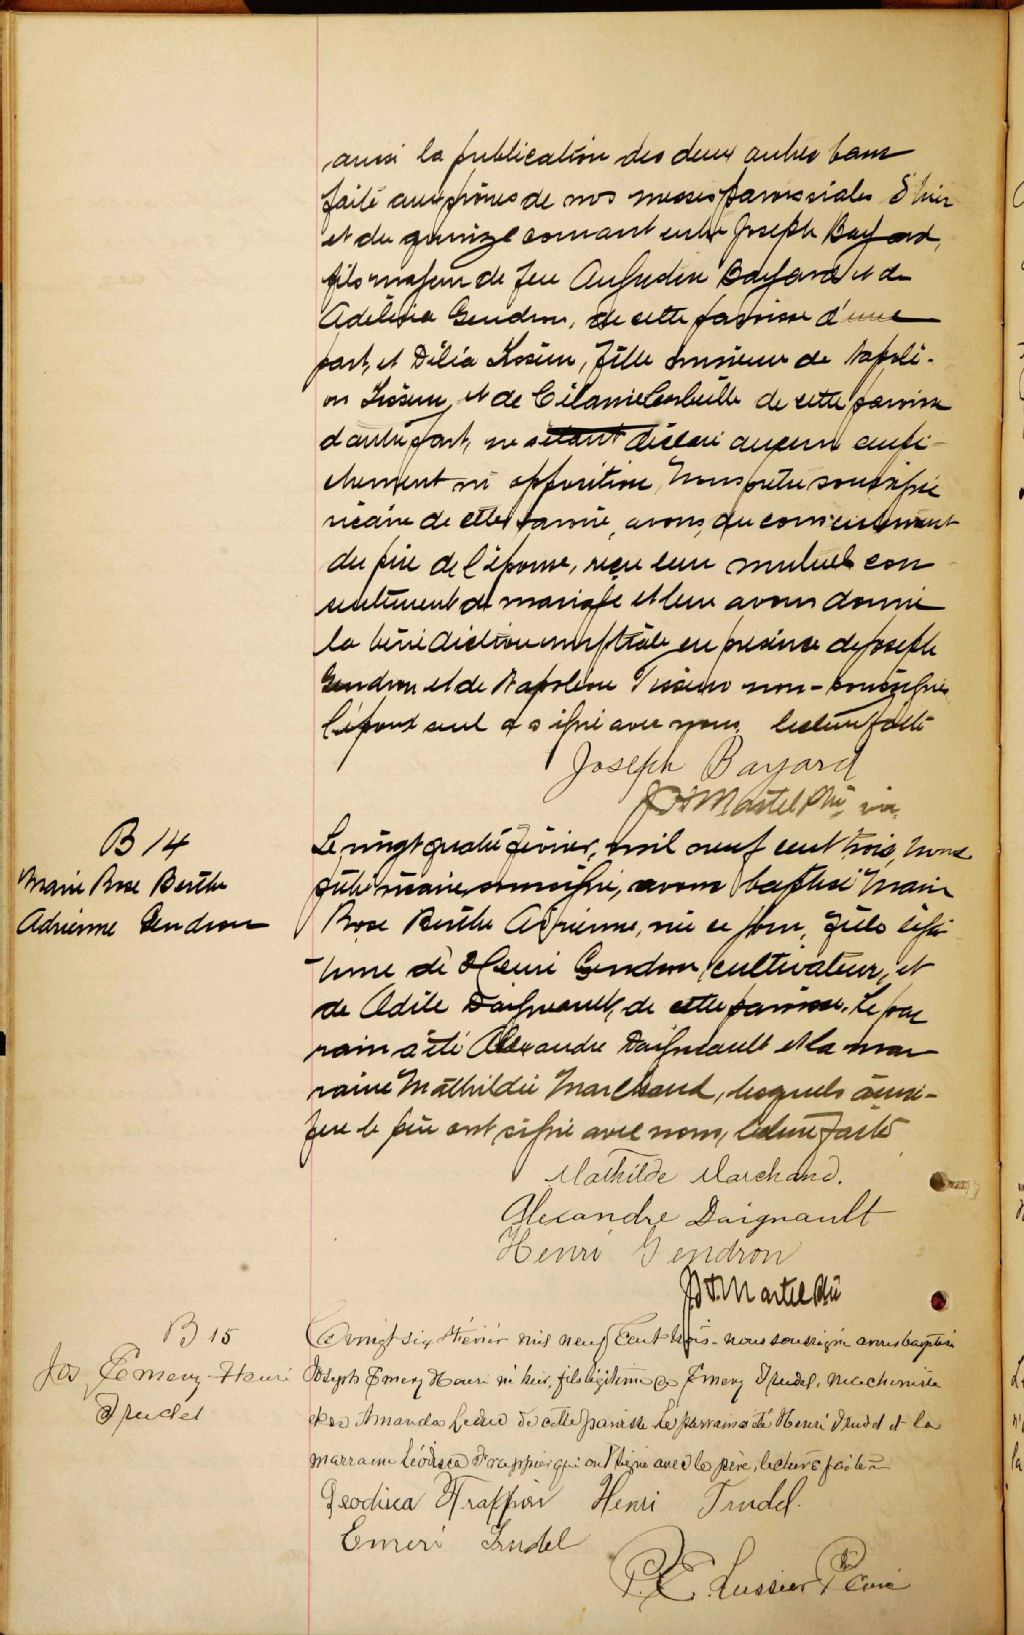 aussi la publication des deux autres bans
faite aux prônes de nos messes paroissiales d'hier
et du quinze courant entre Joseph Bayard,
fils majeur de feu Augustin Bayard et de
Adélina Gendron, de cette paroisse d'une
part, et Délia fille mineure de Napolé-
on et de Corbeille de cette paroisse
d'autre part, ne s'étant déclaré aucun empê-
chement ni opposition, Nous prêtre soussigné
vicaire de cette paroisse, avons, du consentement
du père de l'épouse, reçu leur mutuel con
sentement de mariage et leur avons donné
la bénédiction nuptiale en présence de Joseph
Gendron et de Napoléon non-soussignés
l'époux seul a signé avec nous. lecture faite
Joseph Bayard
J Martel Ptre vic.
B 14
Marie Rose Berthe
Adrienne Gendron
Le vingt quatre février, mil neuf cent trois, Nous
prêtre vicaire soussigné, avons baptisé Marie
Rose Berthe Adrienne, née ce jour, fille légi
time de Henri Gendron, cultivateur, et
de Adile Daigneault, de cette paroisse. Le par
rain a été Alexandre Daigneault et la mar
raine Mathilde Marchand, lesquels ainsi-
que le père ont signé avec nous, lecture faite
Mathilde Marchand.
Alexandre Daignault
Henri Gendron
J Martel Ptre
B 15
Jos Emery Henri
Trudel
Le vingt six février mil neuf cent trois nous soussigné avons baptisé
Joseph Emery Henri né hier, fils légitime de Emery Trudel, machiniste
et de Amanda Leduc de cette paroisse Le parrain a été Henri Trudel et la
marraine Léodisca Frappier qui ont signé avec le père, lecture faite
Leodisca Frappier Henri Trudel.
Emeri Trudel
P. E. Lussier Ptre Curé